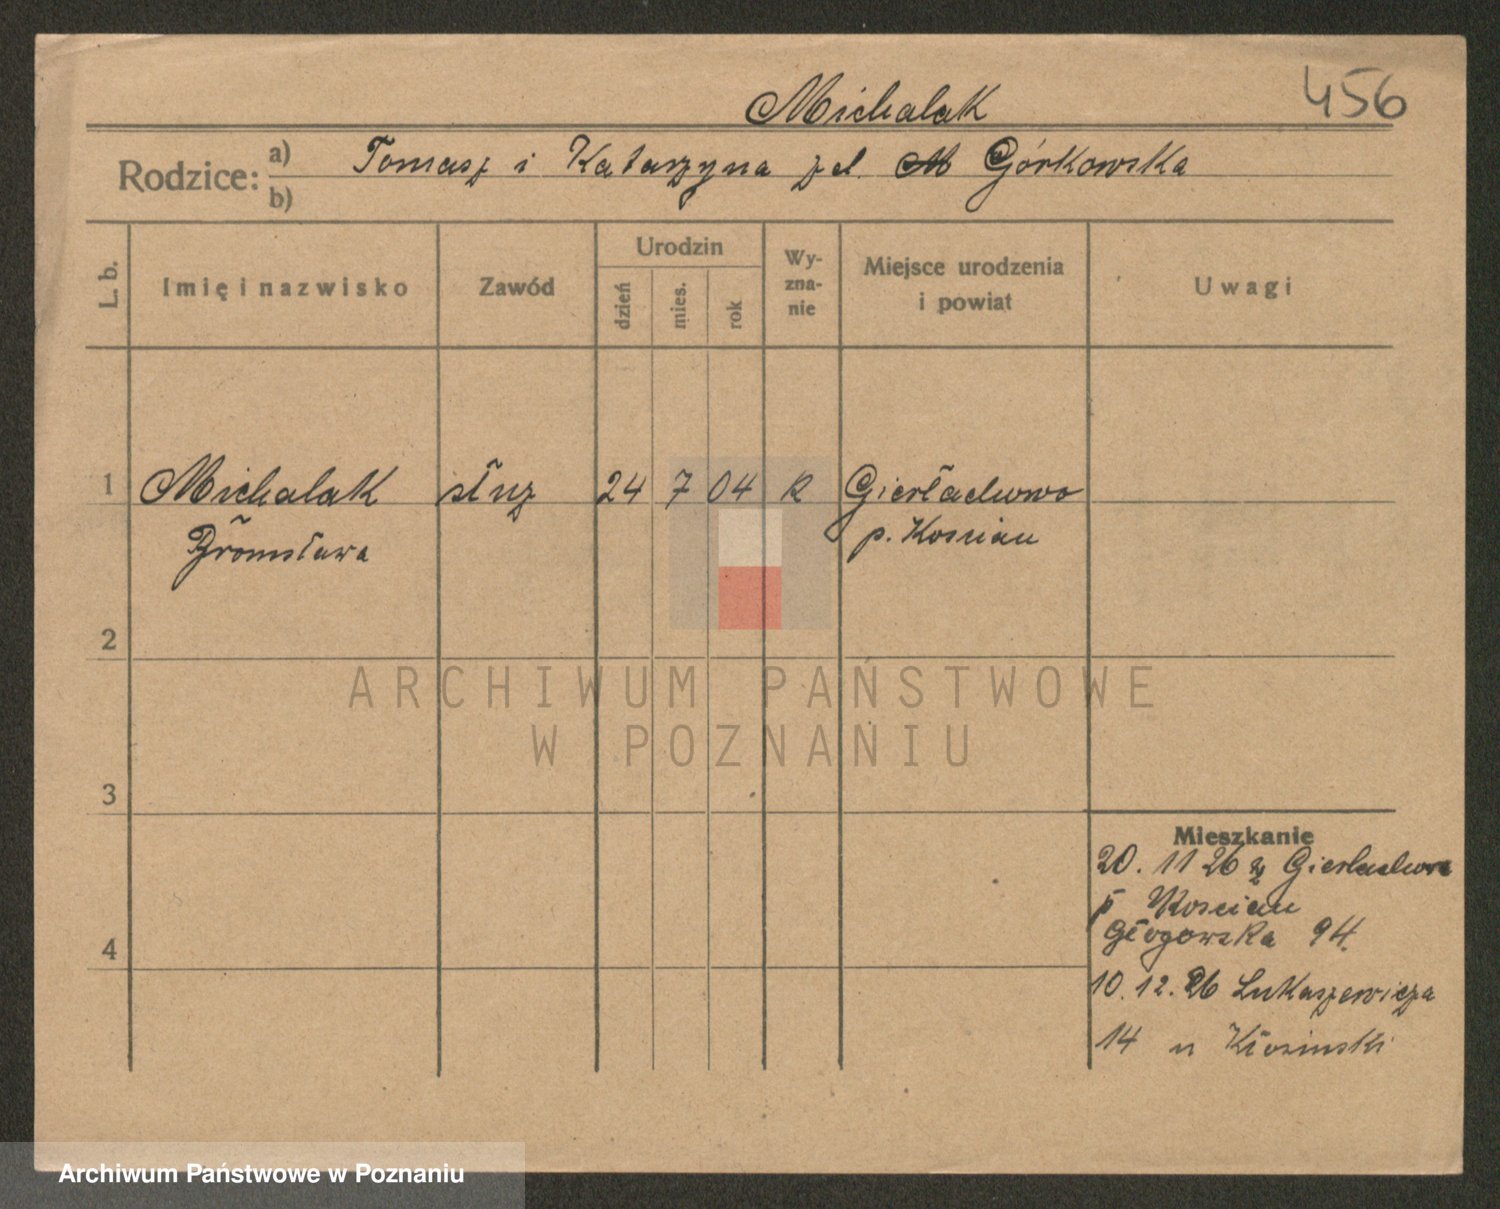 456
Michalak
Rodzice: a) Tomasz i Katarzyna zd. M Górkowska
b)
L. b. Imię i nazwisko Zawód Urodzin dzień mies. rok Wyznanie Miejsce urodzenia i powiat Uwagi
1 Michalak służ 24 7 04 k Gierłachowo
Bronisława p. Kościan
2
ARCHIWUM PAŃSTWOWE
W POZNANIU
3
Mieszkanie
20. 11 26 z Gierłachowo
p Kościan
4 Głogowska 94.
10. 12. 26 Łukaszewicza
14 u Kłosinski
Archiwum Państwowe w Poznaniu